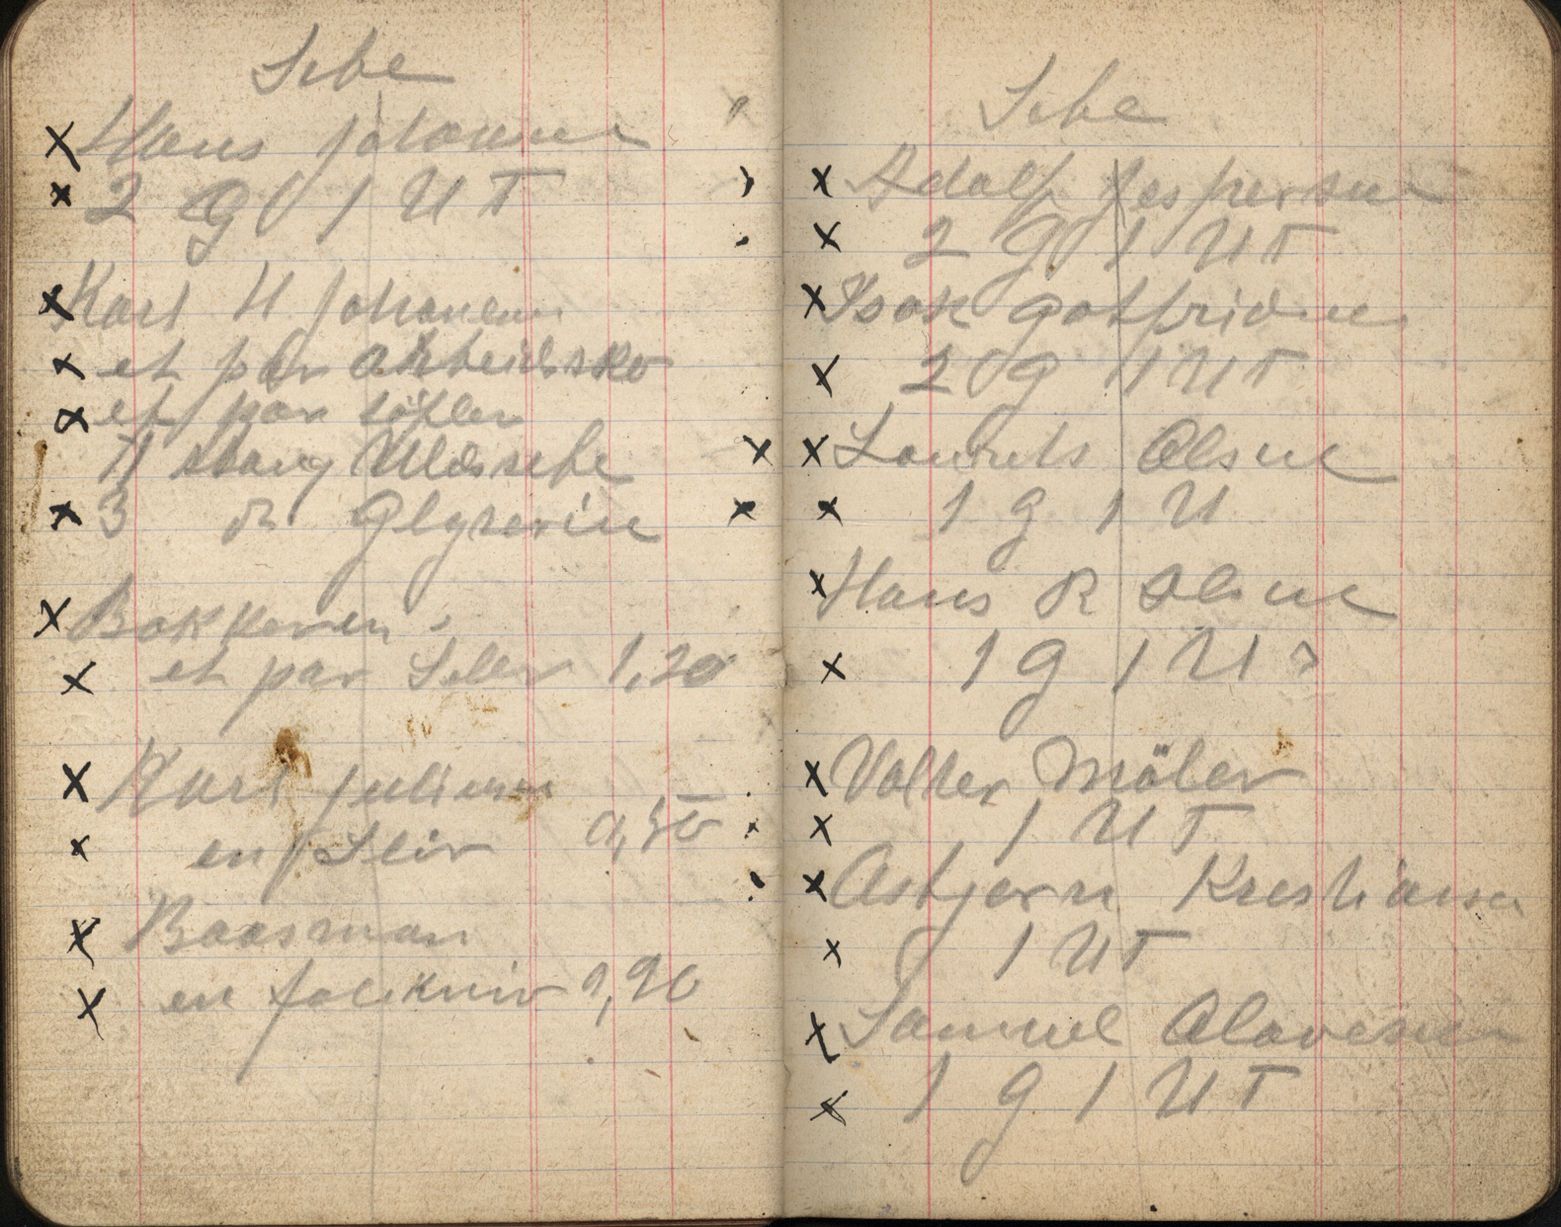 Sebe
x Hans Johanne
x 2 g 1 U T
x Karl H Johansen
x et par arbeidssko
x et par töfler
11 stang Ulvesebe
x 3 Glyserin
x Bakkeren
x et par Seler 1,20
x Karl Juliusen
x en 0,50
x Baasman
x en folikniv 0,90
Sebe
x Adolf Jespersen
x 2 g 1 U T
x Isak Gotfridsen
x 2 g 1 U T
x Laurits Olsen
x 1 g 1 U
x Hans R Olsen
x 1 g 1 U
x Valter Möler
x 1 U T
x Astjern Krestiansen
x 1 U T
x Samuel Olavesen
x 1 g 1 U T